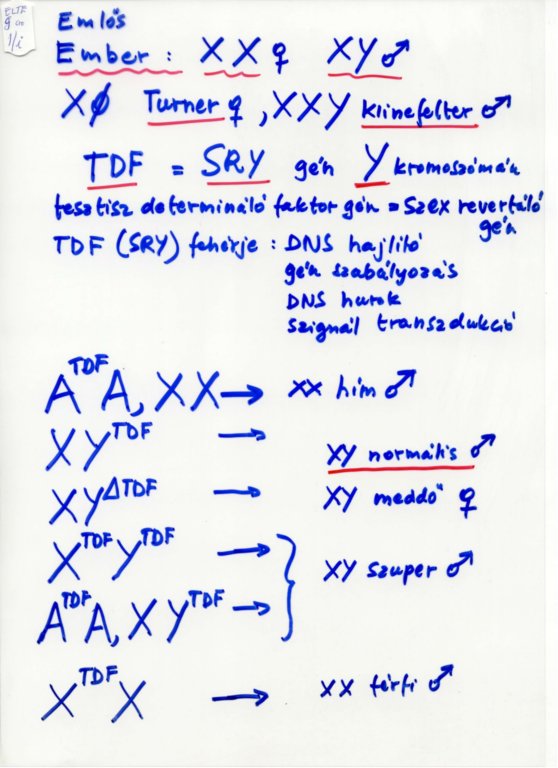 ELTE
g cn
1/i
Emlős
Ember : XX ♀ XY ♂
XØ Turner ♀, XXY Klinefelter ♂
TDF = SRY gén Y kromoszómán
tesztisz determináló faktor gén = szex revertáló
gén
TDF (SRY) fehérje : DNS hajlító
gén szabályozás
DNS hurok
szignál transzdukció
A^TDF A, XX → XX hím ♂
XY^TDF → XY normális ♂
XY^ΔTDF → XY meddő ♀
X^TDF Y^TDF →
} XY szuper ♂
A^TDF A, XY^TDF →
X^TDF X → XX férfi ♂